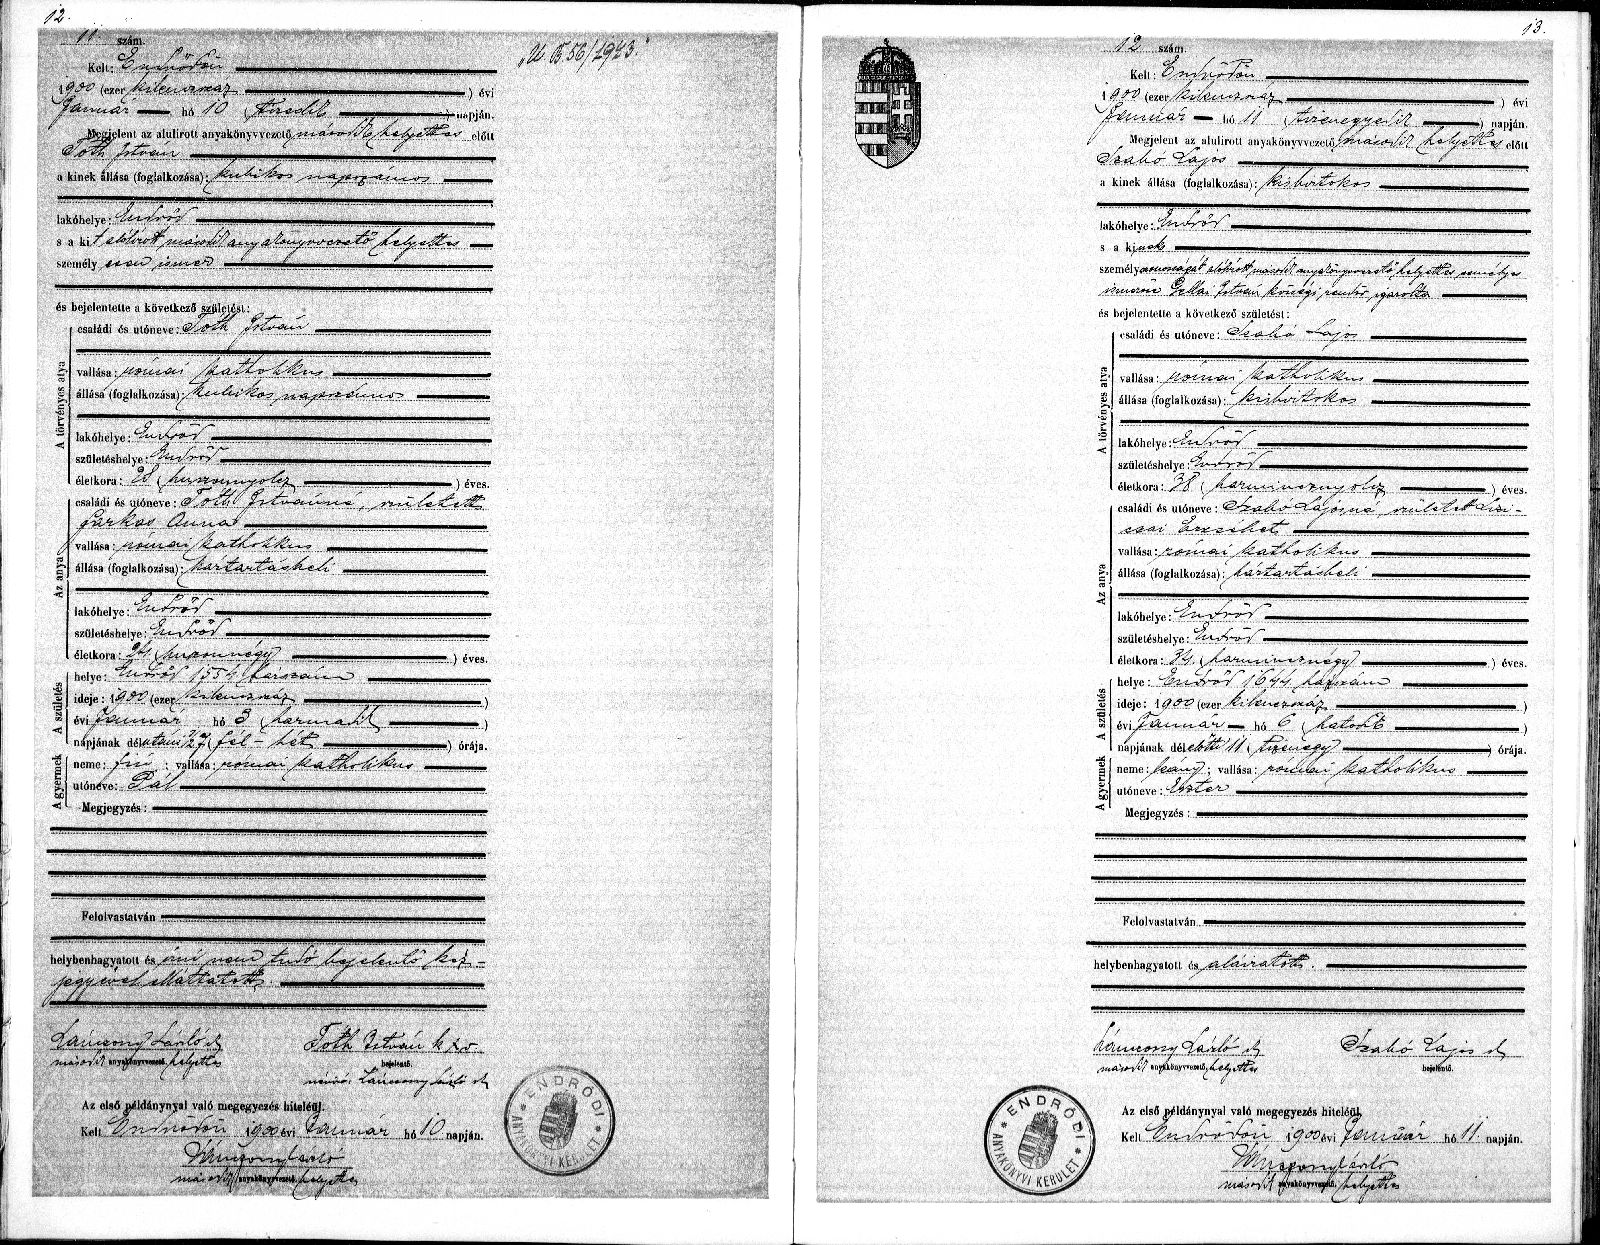 12.
11. szám.
"U. B. 56/1923."
Kelt: Endrődön
1900 (ezer kilenczszáz ) évi
Január hó 10 (tizedik ) napján.
Megjelent az alulirott anyakönyvvezető második helyettes előtt
Tóth István
a kinek állása (foglalkozása): kubikos napszámos
lakóhelye: Endrőd
s a kit előírott második anyakönyvvezető helyettes
személyesen ismer
és bejelentette a következő születést:
A törvényes atya
családi és utóneve: Tóth István
vallása: római katholikus
állása (foglalkozása): kubikos napszámos
lakóhelye: Endrőd
születéshelye: Endrőd
életkora: 28 (huszonnyolcz ) éves.
Az anya
családi és utóneve: Tóth Istvánné, született
Farkas Anna
vallása: római katholikus
állása (foglalkozása): háztartásbeli
lakóhelye: Endrőd
születéshelye: Endrőd
életkora: 24 (huszonnégy) ) éves.
A születés
helye: Endrőd 1554 házszám
ideje: 1900 (ezer kilenczszáz )
évi Január hó 3 (harmadik )
napjának délutáni 1/2 7 (fél-hét ) órája.
A gyermek
neme: fiú; vallása: római katholikus
utóneve: Pál
Megjegyzés:
Felolvastatván
helybenhagyatott és írni nem tudó bejelentő kéz-
jegyével elláttatott.
Lánczony László sk
második anyakönyvvezető helyettes
Tóth István k x v
bejelentő.
névíró: Lánczony László sk
Az első példánynyal való megegyezés hiteléül.
Kelt Endrődön 1900 évi Január hó 10 napján.
Lánczony László
második anyakönyvvezető helyettes
ENDRŐDI ANYAKÖNYVI KERÜLET
13.
12 szám.
Kelt: Endrődön
1900 (ezer kilenczszáz ) évi
Január hó 11 (tizenegyedik ) napján.
Megjelent az alulirott anyakönyvvezető második helyettes előtt
Szabó Lajos
a kinek állása (foglalkozása): kisbirtokos
lakóhelye: Endrőd
s a kinek
személyazonosságát előírott második anyakönyvvezető helyettes személyes
ismerőse Gellai István községi rendőr igazolta
és bejelentette a következő születést:
A törvényes atya
családi és utóneve: Szabó Lajos
vallása: római katholikus
állása (foglalkozása): kisbirtokos
lakóhelye: Endrőd
születéshelye: Endrőd
életkora: 38 (harmincznyolcz ) éves.
Az anya
családi és utóneve: Szabó Lajosné, született
Erzsébet
vallása: római katholikus
állása (foglalkozása): háztartásbeli
lakóhelye: Endrőd
születéshelye: Endrőd
életkora: 34 (harmincznégy) ) éves.
A születés
helye: Endrőd 1644 házszám
ideje: 1900 (ezer kilenczszáz )
évi Január hó 6 (hatodik )
napjának délelőtti 11 (tizenegy) ) órája.
A gyermek
neme: leány; vallása: római katholikus
utóneve: Eszter
Megjegyzés:
Felolvastatván
helybenhagyatott és aláiratott.
Lánczony László sk
második anyakönyvvezető, helyettes
Szabó Lajos sk
bejelentő.
Az első példánynyal való megegyezés hiteléül.
Kelt Endrődön 1900 évi Január hó 11 napján.
Lánczony László
második anyakönyvvezető. helyettes
ENDRŐDI ANYAKÖNYVI KERÜLET